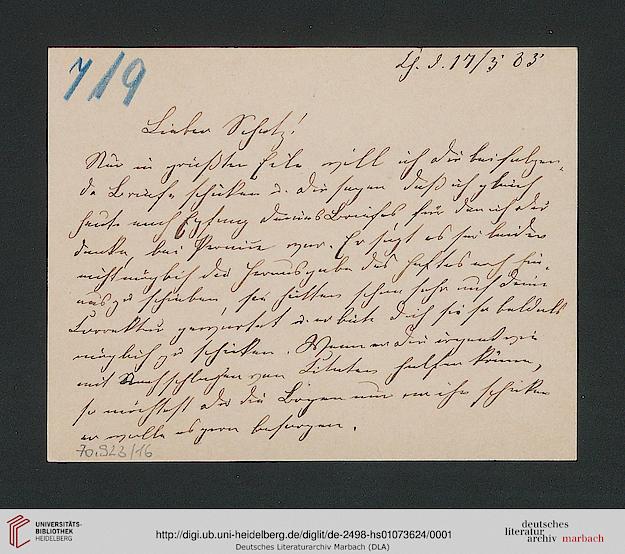 7/9
Lieber Schatz!
Nur in größter Eile will ich dir beifolgen-
de Briefe schicken u. dir sagen daß ich gleich
heute nach Empfang deines Briefes für den ich dir
danke, bei war. Er sagt es sei leider
nicht möglich die Herausgabe des Heftes noch hin-
auszuschieben, sie hätten schon sehr auf deine
Correktur gewartet u. er bäte dich sie so bald als
möglich zu schicken. Wenn er dir irgendwie
mit Nachschlagen von Citaten helfen könne,
so möchtest du die Bogen nur an ihn schicken
er wolle es gern besorgen.
70.923/16
UNIVERSITÄTS-
BIBLIOTHEK
HEIDELBERG
http://digi.ub.uni-heidelberg.de/diglit/de-2498-hs01073624/0001
Deutsches Literaturarchiv Marbach (DLA)
deutsches
literatur
archiv marbach